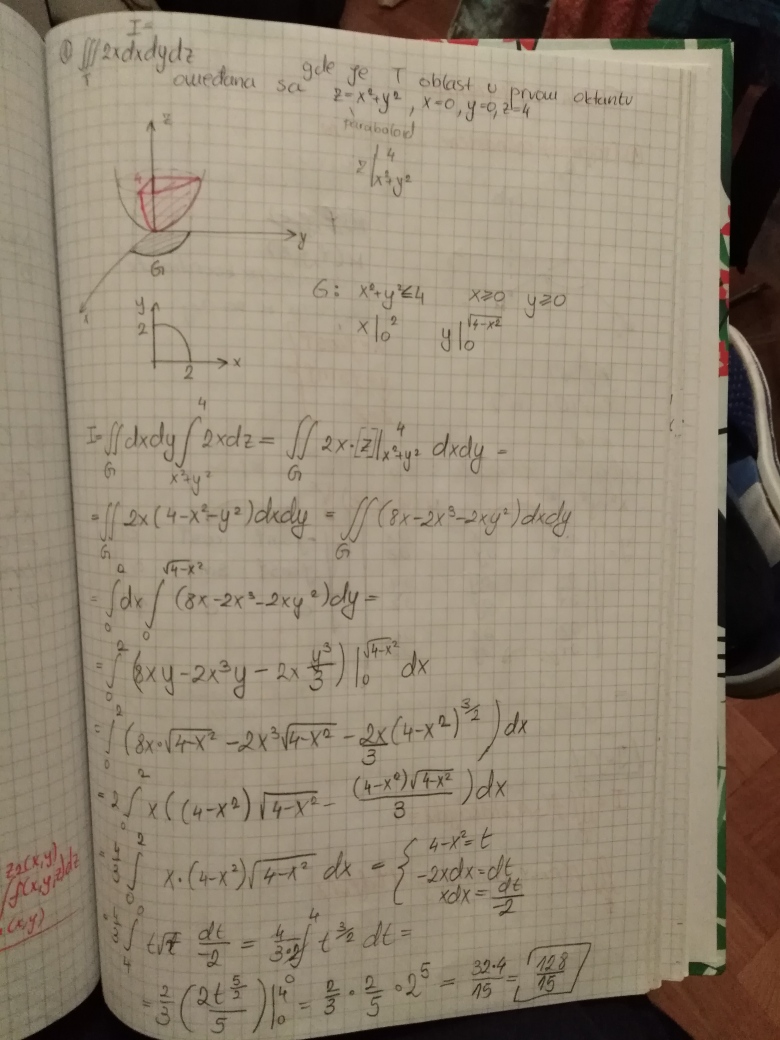 I=
① ∭_T 2xdxdydz gde je T oblast u prvom oktantu
omeđana sa z=x²+y², x=0, y=0, z=4
paraboloid
z|_{x²+y²}^4
z
4
y
G
G: x²+y²≤4 x≥0 y≥0
x|_0^2 y|_0^{√(4-x²)}
y
2
x
2
I=∬_G dxdy ∫_{x²+y²}^4 2xdz = ∬_G 2x·[z]|_{x²+y²}^4 dxdy =
=∬_G 2x(4-x²-y²)dxdy = ∬_G (8x-2x³-2xy²)dxdy
=∫_0^2 dx ∫_0^{√(4-x²)} (8x-2x³-2xy²)dy=
=∫_0^2 (8xy-2x³y-2x y³/3)|_0^{√(4-x²)} dx
=∫_0^2 (8x·√(4-x²) -2x³√(4-x²) - 2x/3 (4-x²)^{3/2})dx
=2∫_0^2 x((4-x²)√(4-x²) - (4-x²)√(4-x²)/3)dx
=4/3 ∫_0^2 x·(4-x²)√(4-x²) dx = { 4-x²=t
-2xdx=dt
xdx=dt/-2
=4/3 ∫_4^0 t√t dt/-2 = 4/(3·2) ∫_0^4 t^{3/2} dt=
=2/3 (2t^{5/2}/5)|_0^4 = 2/3 · 2/5 · 2^5 = 32·4/15 = 128/15
z₂(x,y)
∫f(x,y,z)dz
(x,y)